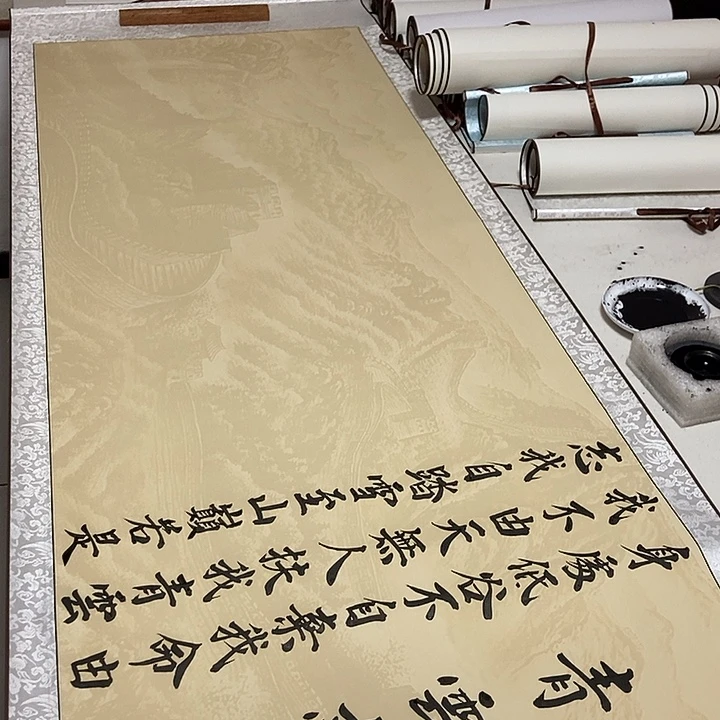 青雲
身處低谷不自棄我命由
我不由天無人扶我青雲
志我自踏雪至山巔若是